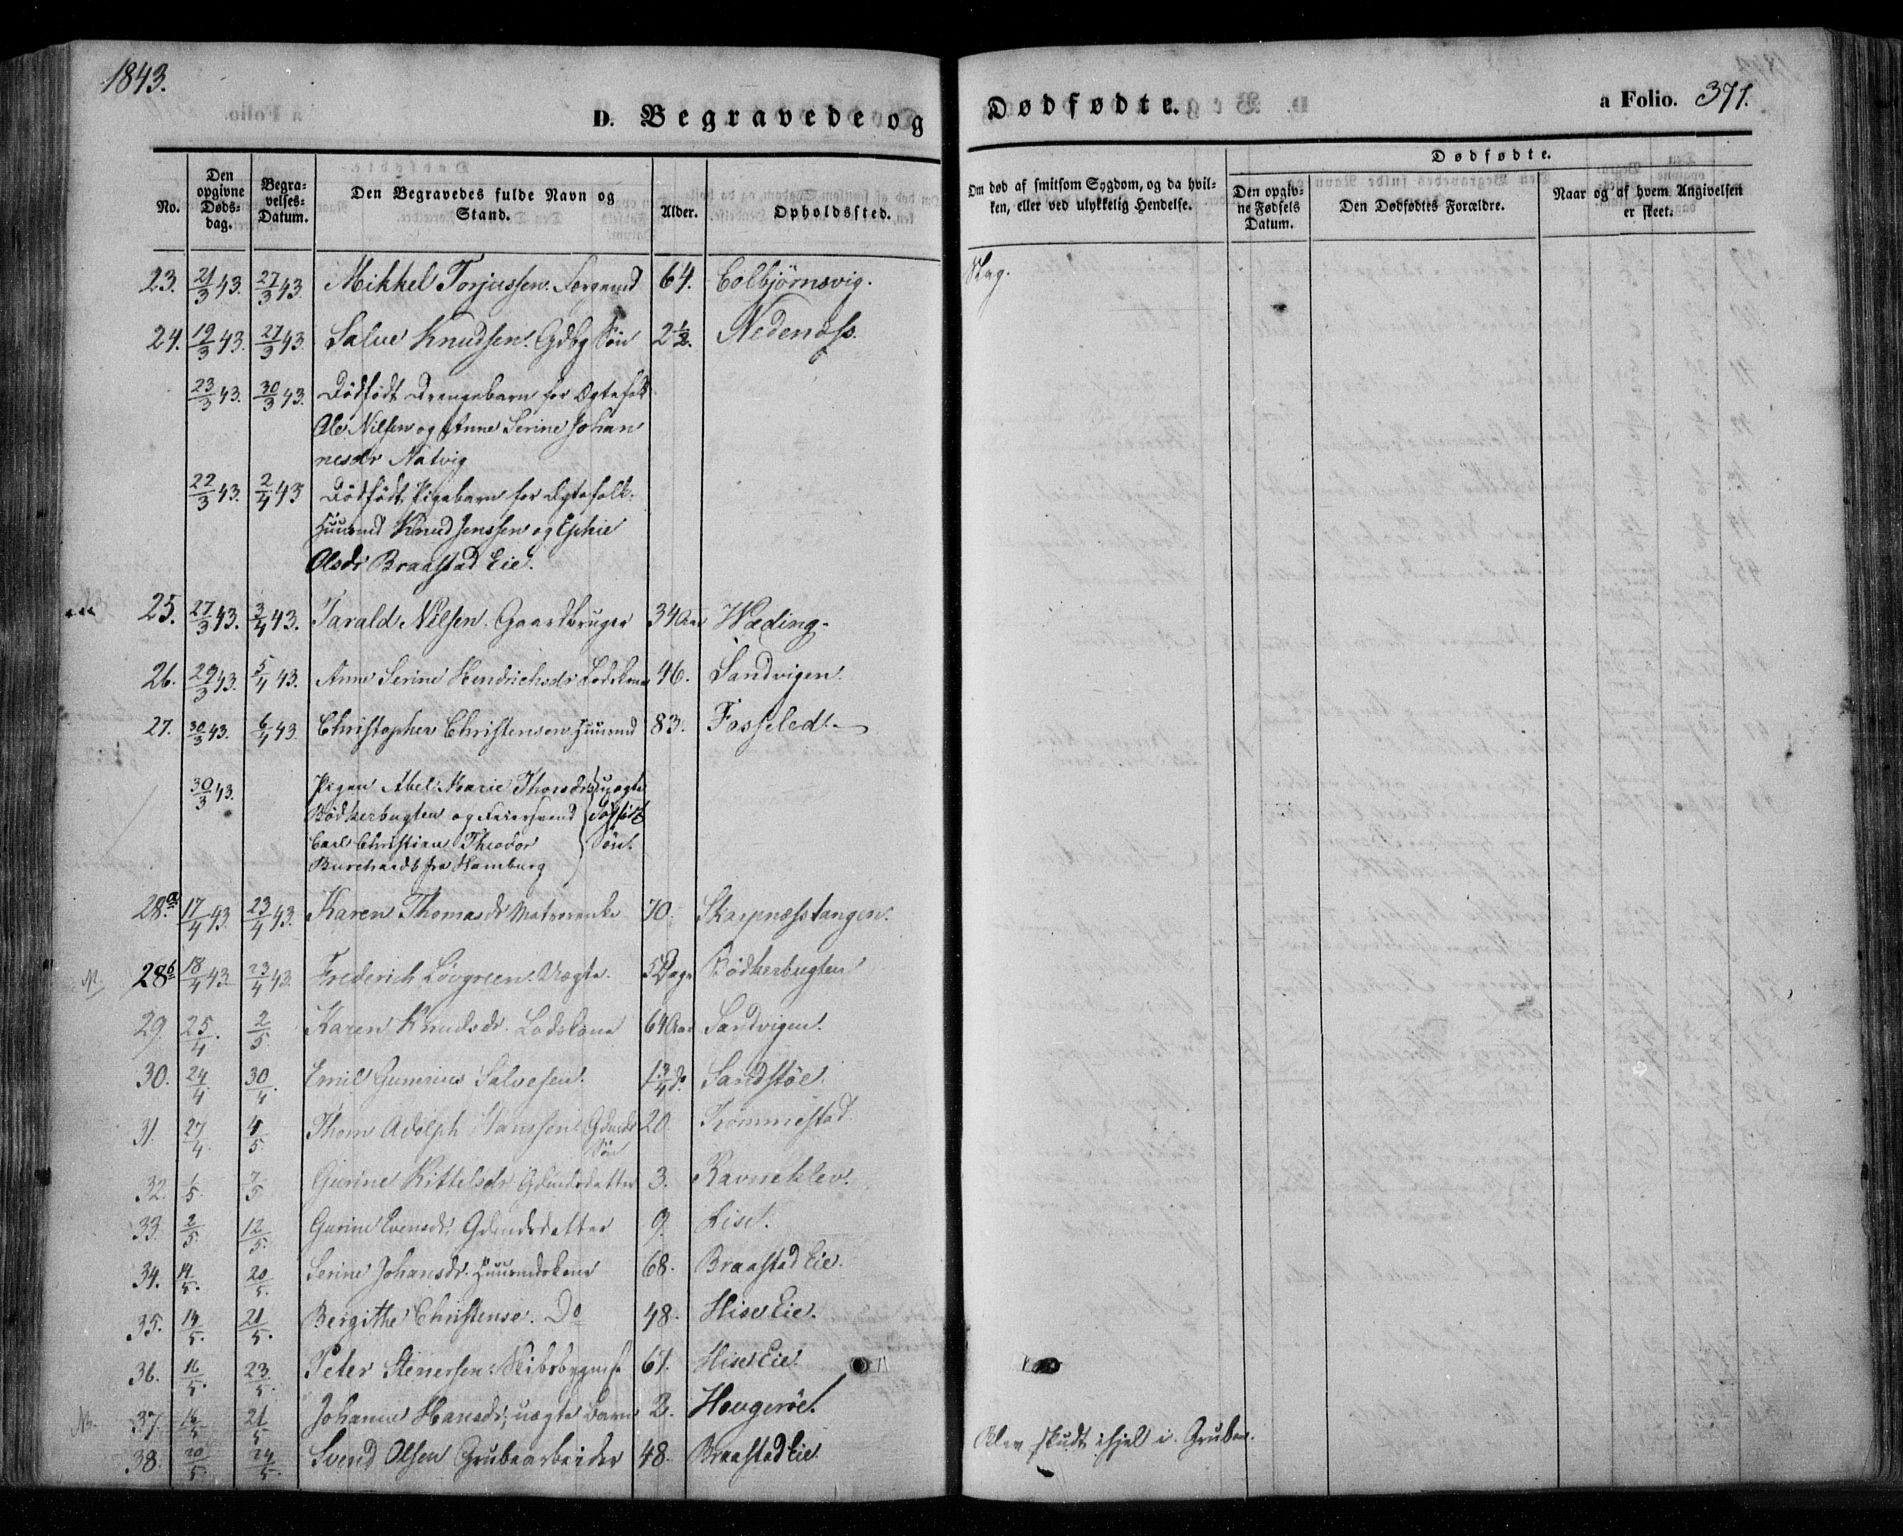 1843.
D. Begravede og Dødfødte.
a Folio. 371.
No.
Den opgivne Dødsdag.
Begravelses-Datum.
Den Begravedes fulde Navn og Stand.
Alder.
Opholdssted.
Om død af smitsom Sygdom, og da hvilken, eller ved ulykkelig Hendelse.
Dødfødte.
Den opgivne Fødsels Datum.
Den Dødfødtes Forældre.
Naar og af hvem Angivelsen er skeet.
23. 21/3 43. 27/3 43. Mikkel Torjussen 64. Colbjørnsvig. Slag.
24. 19/3 43. 27/3 43. Salve Knudsen. Gdbg Søn 2 1/2. Nedenæss.
23/3 43. 30/3 43. Dødfødt Drengebarn for Ægtefolk
Ole Nilsen og Anne Serine Johan
nesdr Natvig
22/3 43. 2/4 43 Dødfødt Pigebarn for Ægtefolk.
Huusmd Knud Jenssen og Ephie
Olsdr Braastad Eie.
25. 27/3 43. 3/4 43. Tarald Nilsen. Gaardbruger 34 Aar Wæding.
26. 29/3 43. 5/4 43. Anne Serine Hendrichsdr Lodskone 46. Sandvigen.
27. 30/3 43. 6/4 43. Christopher Christensen Huusmd 83. Fosseledt.
30/3 43. Pigen Abel Marie Thorsdr uægte
Bødkerbugten og dødfødt
Carl Christian Theodor Søn.
Burchardt fra Hamburg
28.a 17/4 43. 23/4 43. Karen Thomasdr Matrosenke 70. Skarpnæsstangen.
28b 18/4 43. 23/4 43. Frederich Løvgreen. Uægte. 5 Dage Bødkerbugten
29. 25/4. 2/5. Karen Knudsdr. Lodskone 64 Aar Sandvigen.
30. 24/4. 30/4. Emil Gunnius Salvesen. 1 3/4 do. Sandstøe.
31. 27/4. 4/5. Thom Adolph Hanssen Gdmds 20. Trommestad.
Søn
32. 1/5. 7/5 Gurine Kittelsdr Gdmdsdatter 3. Ravneklev.
33. 2/5. 12/5. Gurine Evensdr. Gdmdsdatter 9. Lise.
34. 14/5. 20/5. Serine Johansdr. Huusmdskone 68. Braastad Eie.
35. 14/5. 21/5. Bergithe Christense. Do 48. Hise Eie.
36. 16/5. 23/5. Peter Stenersen. Skibsbygger 67. Hise Eie.
37. 16/5 21/5 Johanne Hansdr, uægte Barn 2. Hougerøe.
38. 20/5 24/5. Svend Olsen Grubearbeider 48. Braastad Eie. Blev skudt ihjel i Gruben.